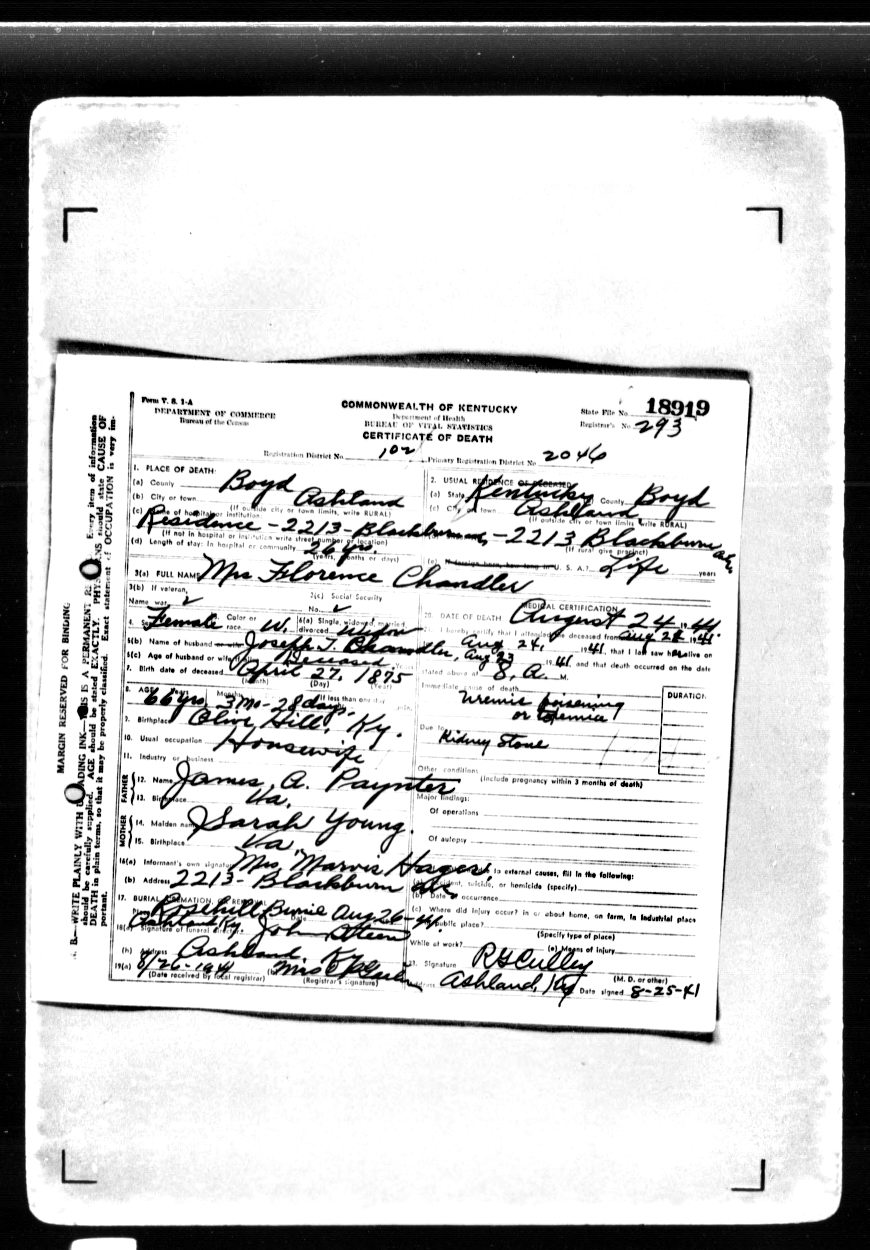 Form V. S. 1-A
DEPARTMENT OF COMMERCE
Bureau of the Census
COMMONWEALTH OF KENTUCKY
Department of Health
BUREAU OF VITAL STATISTICS
CERTIFICATE OF DEATH
State File No. 18919
Registrar's No. 293
Registration District No. 102 Primary Registration District No. 2046
1. PLACE OF DEATH:
(a) County Boyd
(b) City or town Ashland
(If outside city or town limits, write RURAL)
(c) Name of hospital or institution:
Residence - 2213 - Blackburn
(If not in hospital or institution write street number or location)
(d) Length of stay: In hospital or community 26 yrs.
(years, months or days)
2. USUAL RESIDENCE OF DECEASED
(a) State Kentucky County Boyd
(c) City or town Ashland
(If outside city or town limits write RURAL)
- 2213 Blackburn ave.
(If rural give precinct)
(e) If foreign born, how long in U. S. A.? Life years
3(a) FULL NAME Mrs Florence Chandler
3(b) If veteran,
Name war
3(c) Social Security
No.
4. Sex Female Color or race W. 6(a) Single, widowed, married, divorced Widow
5(b) Name of husband or wife Joseph T. Chandler,
5(c) Age of husband or wife if alive Deceased Years
7. Birth date of deceased April 27, 1875
(Month) (Day) (Year)
8. AGE: Years Months If less than one day
66 yrs 3 mo - 28 days
9. Birthplace Olive Hill, Ky.
10. Usual occupation Housewife
11. Industry or business
FATHER
12. Name James A. Paynter
13. Birthplace Va.
MOTHER
14. Maiden name Sarah Young.
15. Birthplace Va.
16(a) Informant's own signature Mrs, Marvis Hager,
(b) Address 2213 - Blackburn ave.
17. BURIAL, CREMATION, OR REMOVAL
Place Rosehill Burial Date Aug 26-41
Ashland Ky.
18(a) Signature of funeral director John Steen
(b) Address Ashland, Ky
19(a) 8/26-1941 (b) Mrs
(Date received by local registrar) (Registrar's signature)
MEDICAL CERTIFICATION
20. DATE OF DEATH August 24 1941
21. I hereby certify that I attended the deceased from Aug 22 1941
Aug 24, 1941, that I last saw her alive on
Aug 23 1941 and that death occurred on the date
stated above at 8, A. M.
Immediate cause of death
DURATION
Uremic poisening
or
Due to
Kidney Stone
Other conditions
(Include pregnancy within 3 months of death)
Major findings:
Of operations
Of autopsy
to external causes, fill in the following:
(a) Accident, suicide, or homicide (specify)
(b) Date occurrence
(c) Where did injury occur? in or about home, on farm, in industrial place
public place?
(Specify type of place)
While at work? (e) Means of injury
21. Signature R H Culley
(M. D. or other)
Address Ashland, Ky Date signed 8-25-41
MARGIN RESERVED FOR BINDING
N. B.—WRITE PLAINLY WITH UNFADING INK—THIS IS A PERMANENT Every item of information
should be carefully supplied. AGE should be stated EXACTLY. should state CAUSE OF
DEATH in plain terms, so that it may be properly classified. Exact statement of OCCUPATION is very im-
portant.